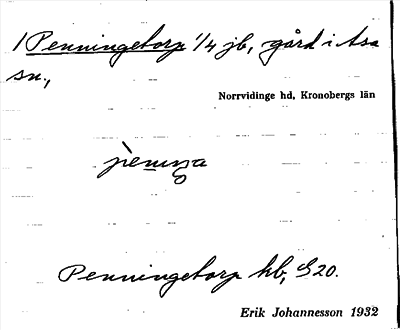 1 Penningetorp 1/4 jb, gård i Asa
sn.,
Norrvidinge hd, Kronobergs län
Penningetorp hb, S20.
Erik Johannesson 1932